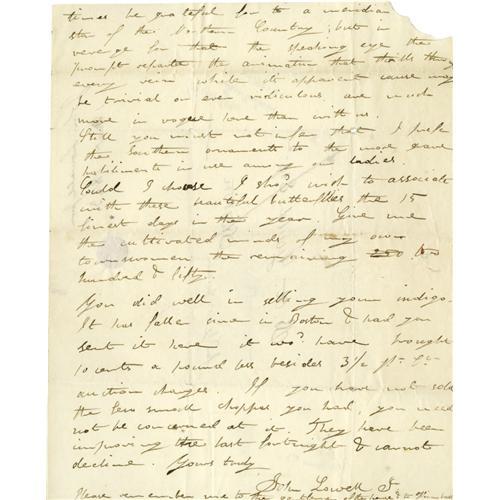 times be grateful for to a meridian
star of the Northern Country; but in
revenge for that the speaking eye the
prompt repartee the animation that thrills through
every vein while its apparent cause may
be trivial or even ridiculous are much
more in vogue here than with us.
Still you must not infer that I prefer
the Southern ornaments to the more grave
habiliments in use among our ladies.
Could I choose I sho.d wish to associate
with these beautiful butterflies the 15
finest days in the year. Give me
the cultivated minds of my own
townswomen the remaining 250 two
hundred & fifty.
You did well in selling your indigo.
It has fallen since in Boston & had you
sent it here it wo.d have brought
10 cents a pound less besides 3½ pr Ct
auction charges. If you have not sold
the less small choppas you had, you need
not be concerned at it. They have been
improving the last fortnight & cannot
decline. Yours truly
John Lowell Jr
Please remember me to the gentlemen